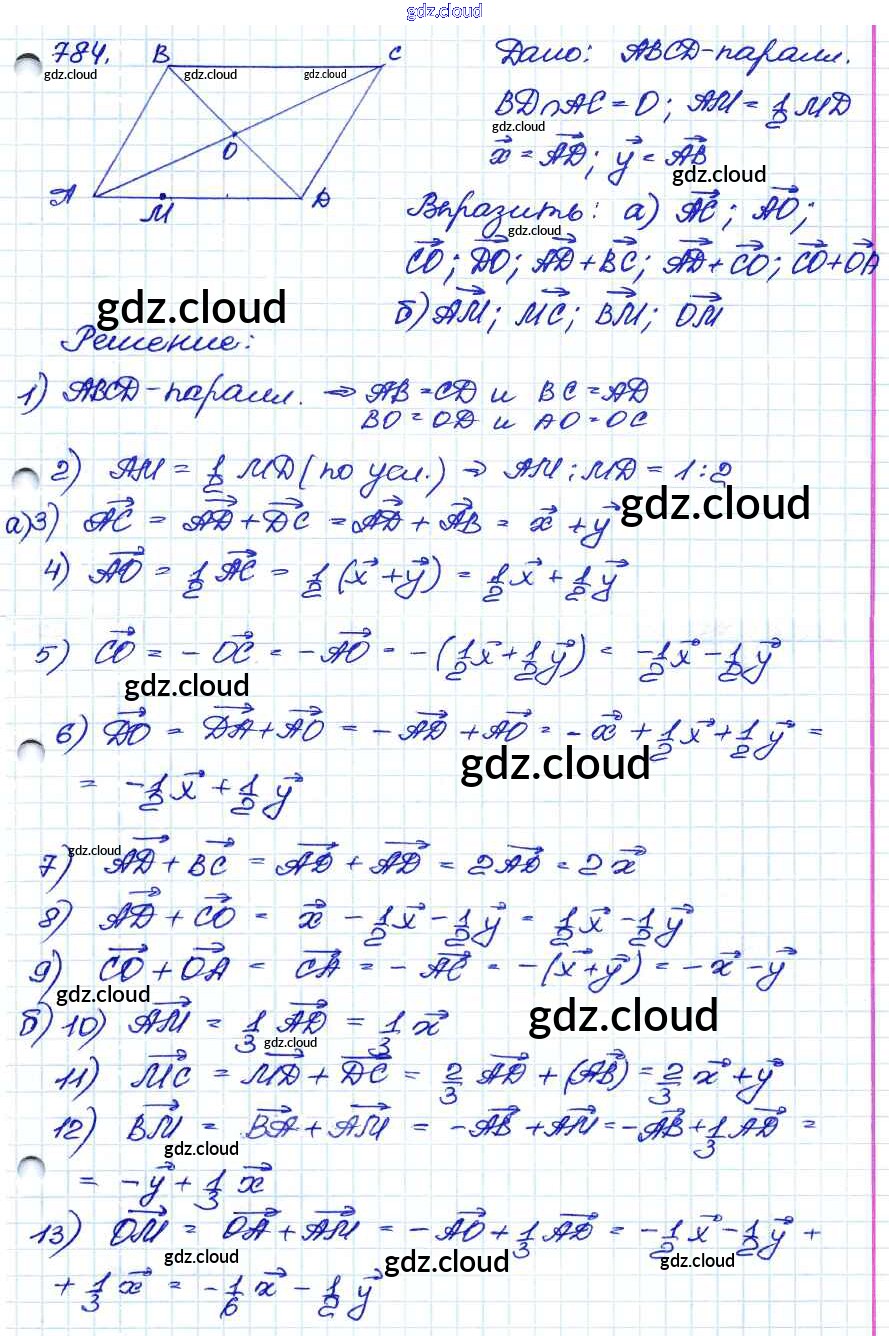 gdz.cloud
784. B C
gdz.cloud gdz.cloud gdz.cloud
Дано: ABCD-паралл.
BD∩AC = O; AM = 1/2 MD
gdz.cloud
x⃗ = AD⃗; y⃗ = AB⃗
gdz.cloud
O
A M D
Выразить: а) AC⃗; AO⃗;
gdz.cloud
CO⃗; DO⃗; AD⃗+BC⃗; AD⃗+CO⃗; CO⃗+OA⃗
б) AM⃗; MC⃗; BM⃗; OM⃗
gdz.cloud
Решение:
1) ABCD-паралл. ⇒ AB=CD и BC=AD
BO=OD и AO=OC
2) AM = 1/2 MD (по усл.) ⇒ AM:MD = 1:2
gdz.cloud
а)3) AC⃗ = AD⃗+DC⃗ = AD⃗+AB⃗ = x⃗+y⃗
4) AO⃗ = 1/2 AC⃗ = 1/2 (x⃗+y⃗) = 1/2 x⃗ + 1/2 y⃗
5) CO⃗ = -OC⃗ = -AO⃗ = -(1/2 x⃗ + 1/2 y⃗) = -1/2 x⃗ - 1/2 y⃗
gdz.cloud
6) DO⃗ = DA⃗+AO⃗ = -AD⃗+AO⃗ = -x⃗ + 1/2 x⃗ + 1/2 y⃗ =
gdz.cloud
= -1/2 x⃗ + 1/2 y⃗
gdz.cloud
7) AD⃗+BC⃗ = AD⃗+AD⃗ = 2AD⃗ = 2x⃗
8) AD⃗+CO⃗ = x⃗ - 1/2 x⃗ - 1/2 y⃗ = 1/2 x⃗ - 1/2 y⃗
9) CO⃗+OA⃗ = CA⃗ = -AC⃗ = -(x⃗+y⃗) = -x⃗-y⃗
gdz.cloud
б) 10) AM⃗ = 1/3 AD⃗ = 1/3 x⃗
gdz.cloud gdz.cloud
11) MC⃗ = MD⃗+DC⃗ = 2/3 AD⃗ + (AB⃗) = 2/3 x⃗ + y⃗
12) BM⃗ = BA⃗+AM⃗ = -AB⃗+AM⃗ = -AB⃗ + 1/3 AD⃗ =
gdz.cloud
= -y⃗ + 1/3 x⃗
13) OM⃗ = OA⃗+AM⃗ = -AO⃗ + 1/3 AD⃗ = -1/2 x⃗ - 1/2 y⃗ +
gdz.cloud gdz.cloud gdz.cloud
+ 1/3 x⃗ = -1/6 x⃗ - 1/2 y⃗